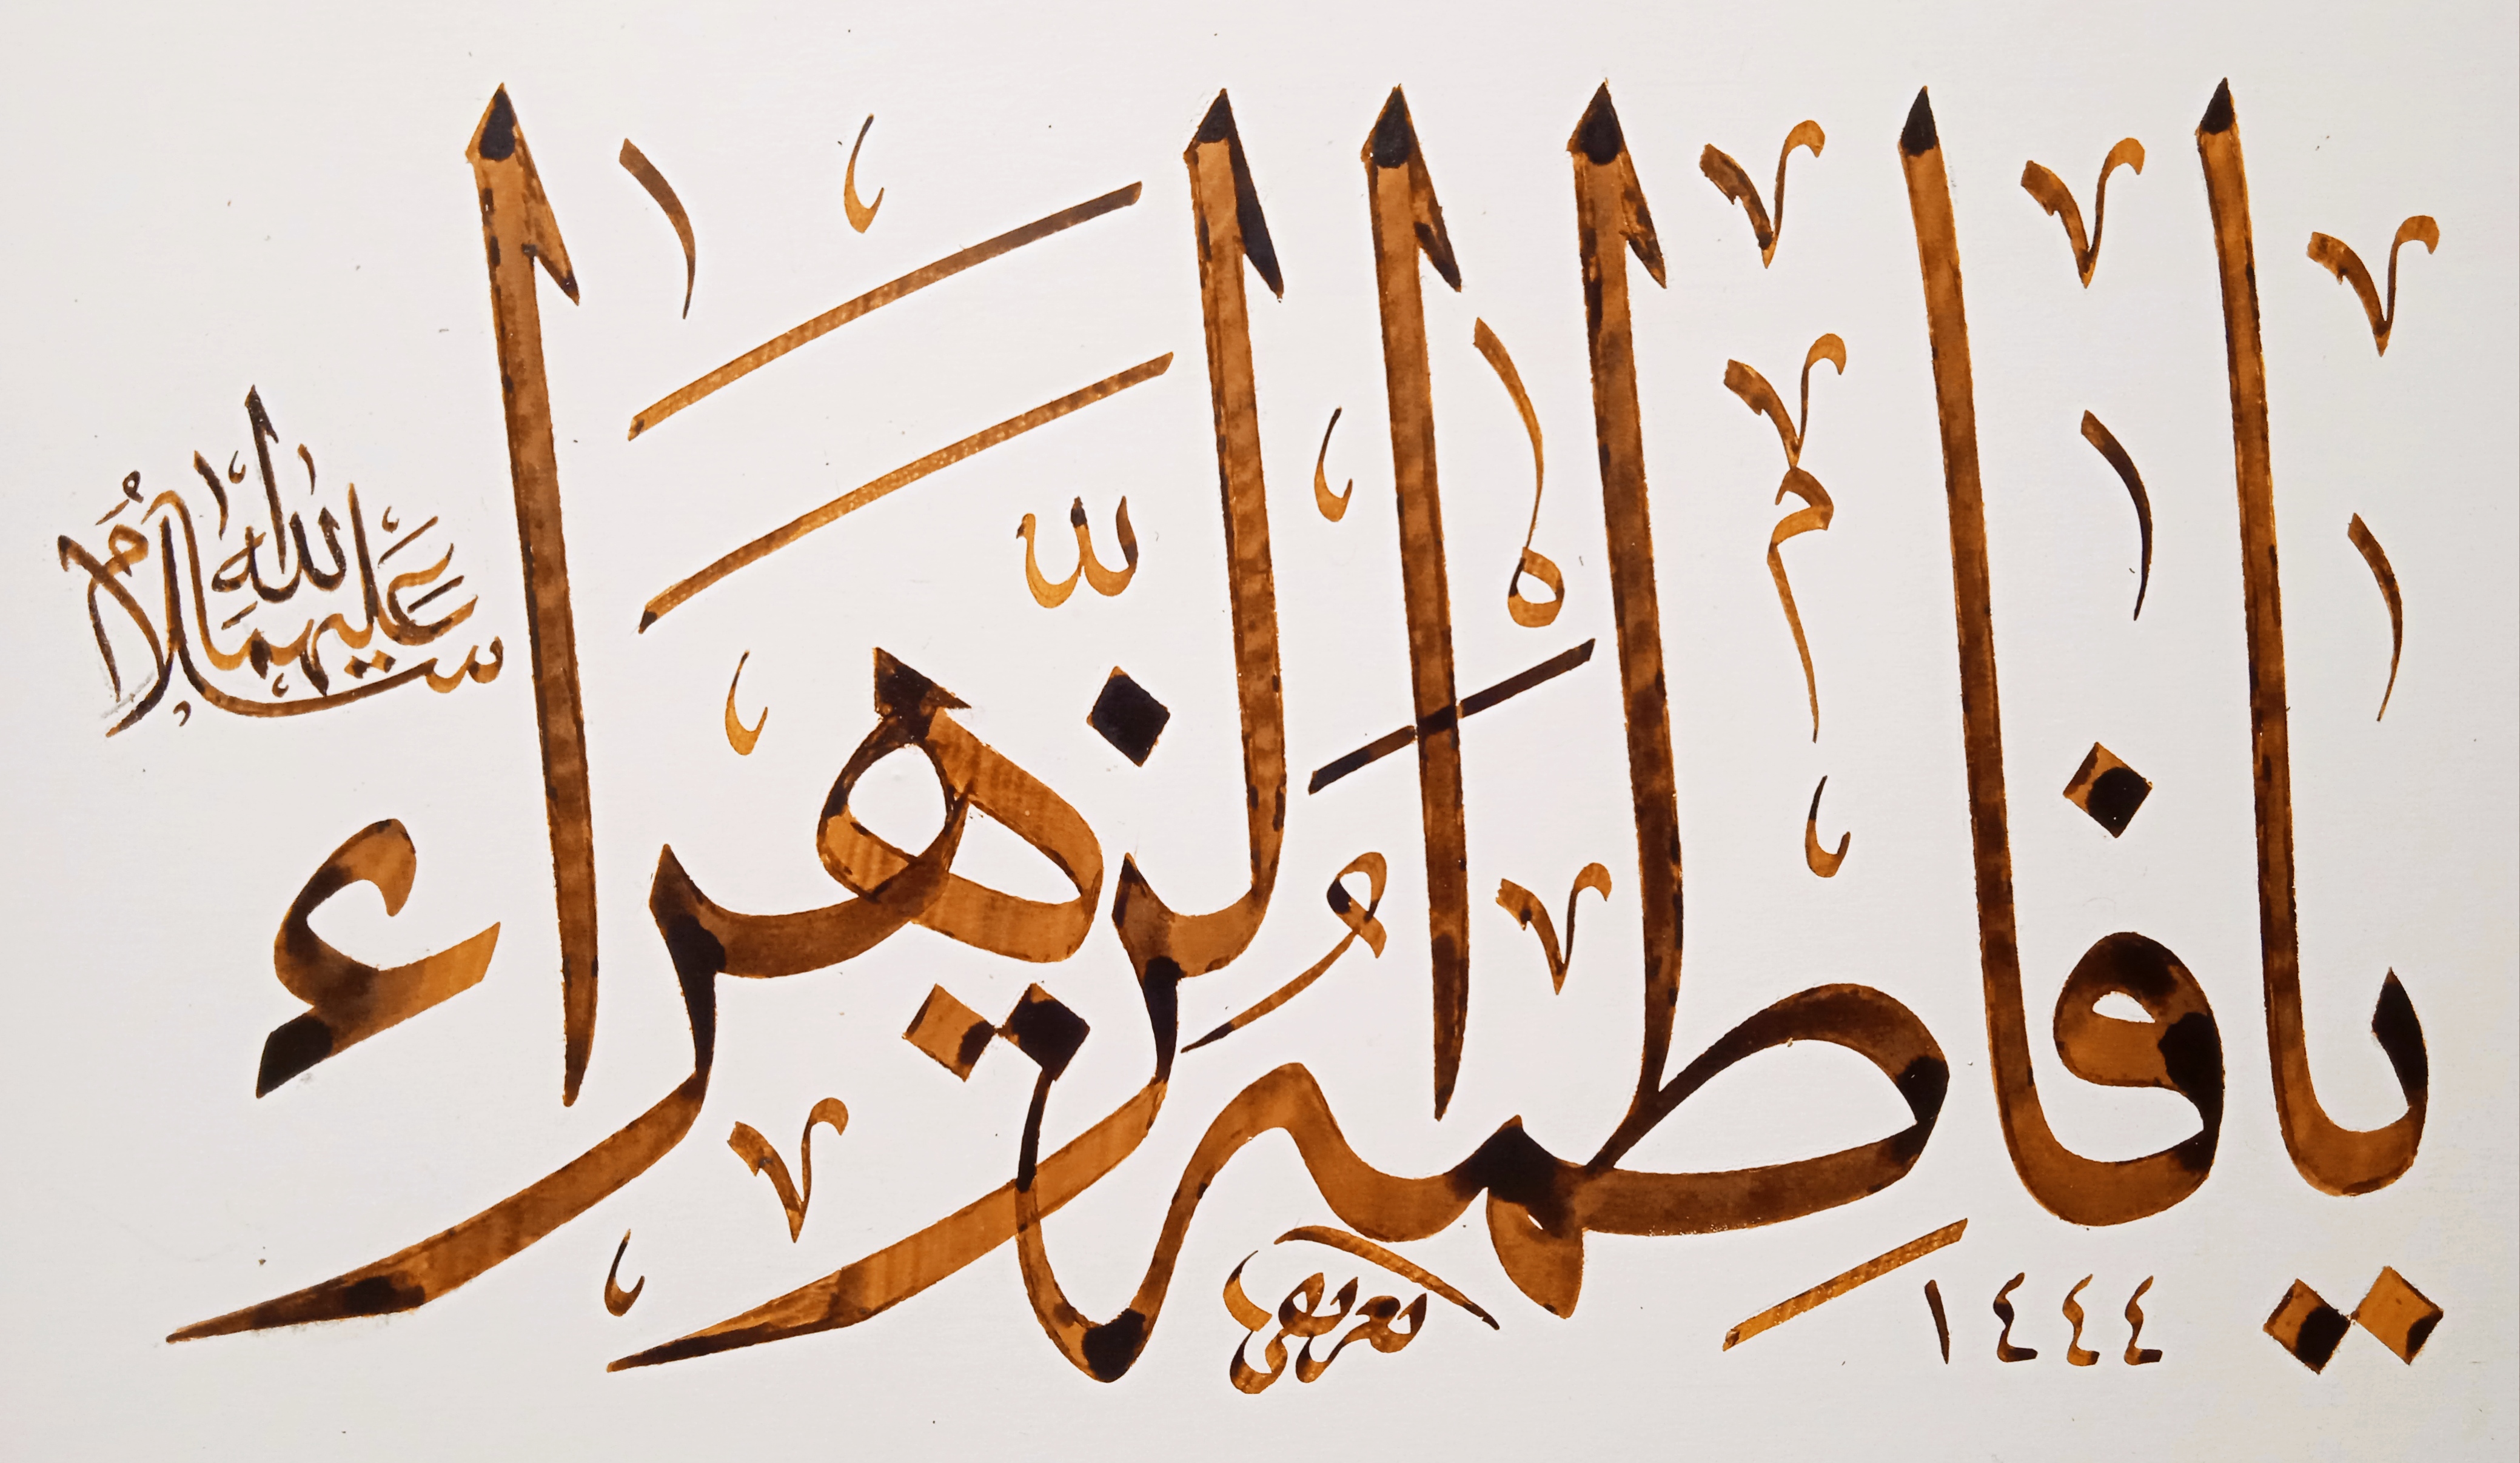 يا فاطمة الزهراء
سلام الله عليها
١٤٤٤